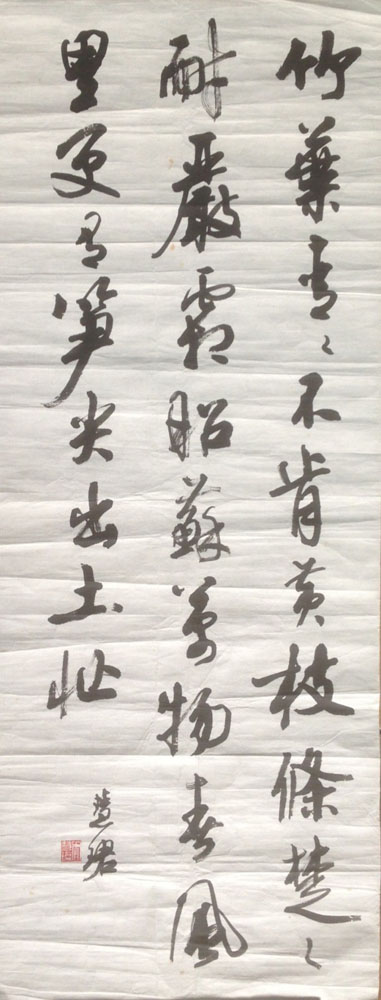 竹葉青〻不肯黄枝條楚〻
耐嚴霜昭蘇萬物春風
里更有笋尖出土忙
慧珺